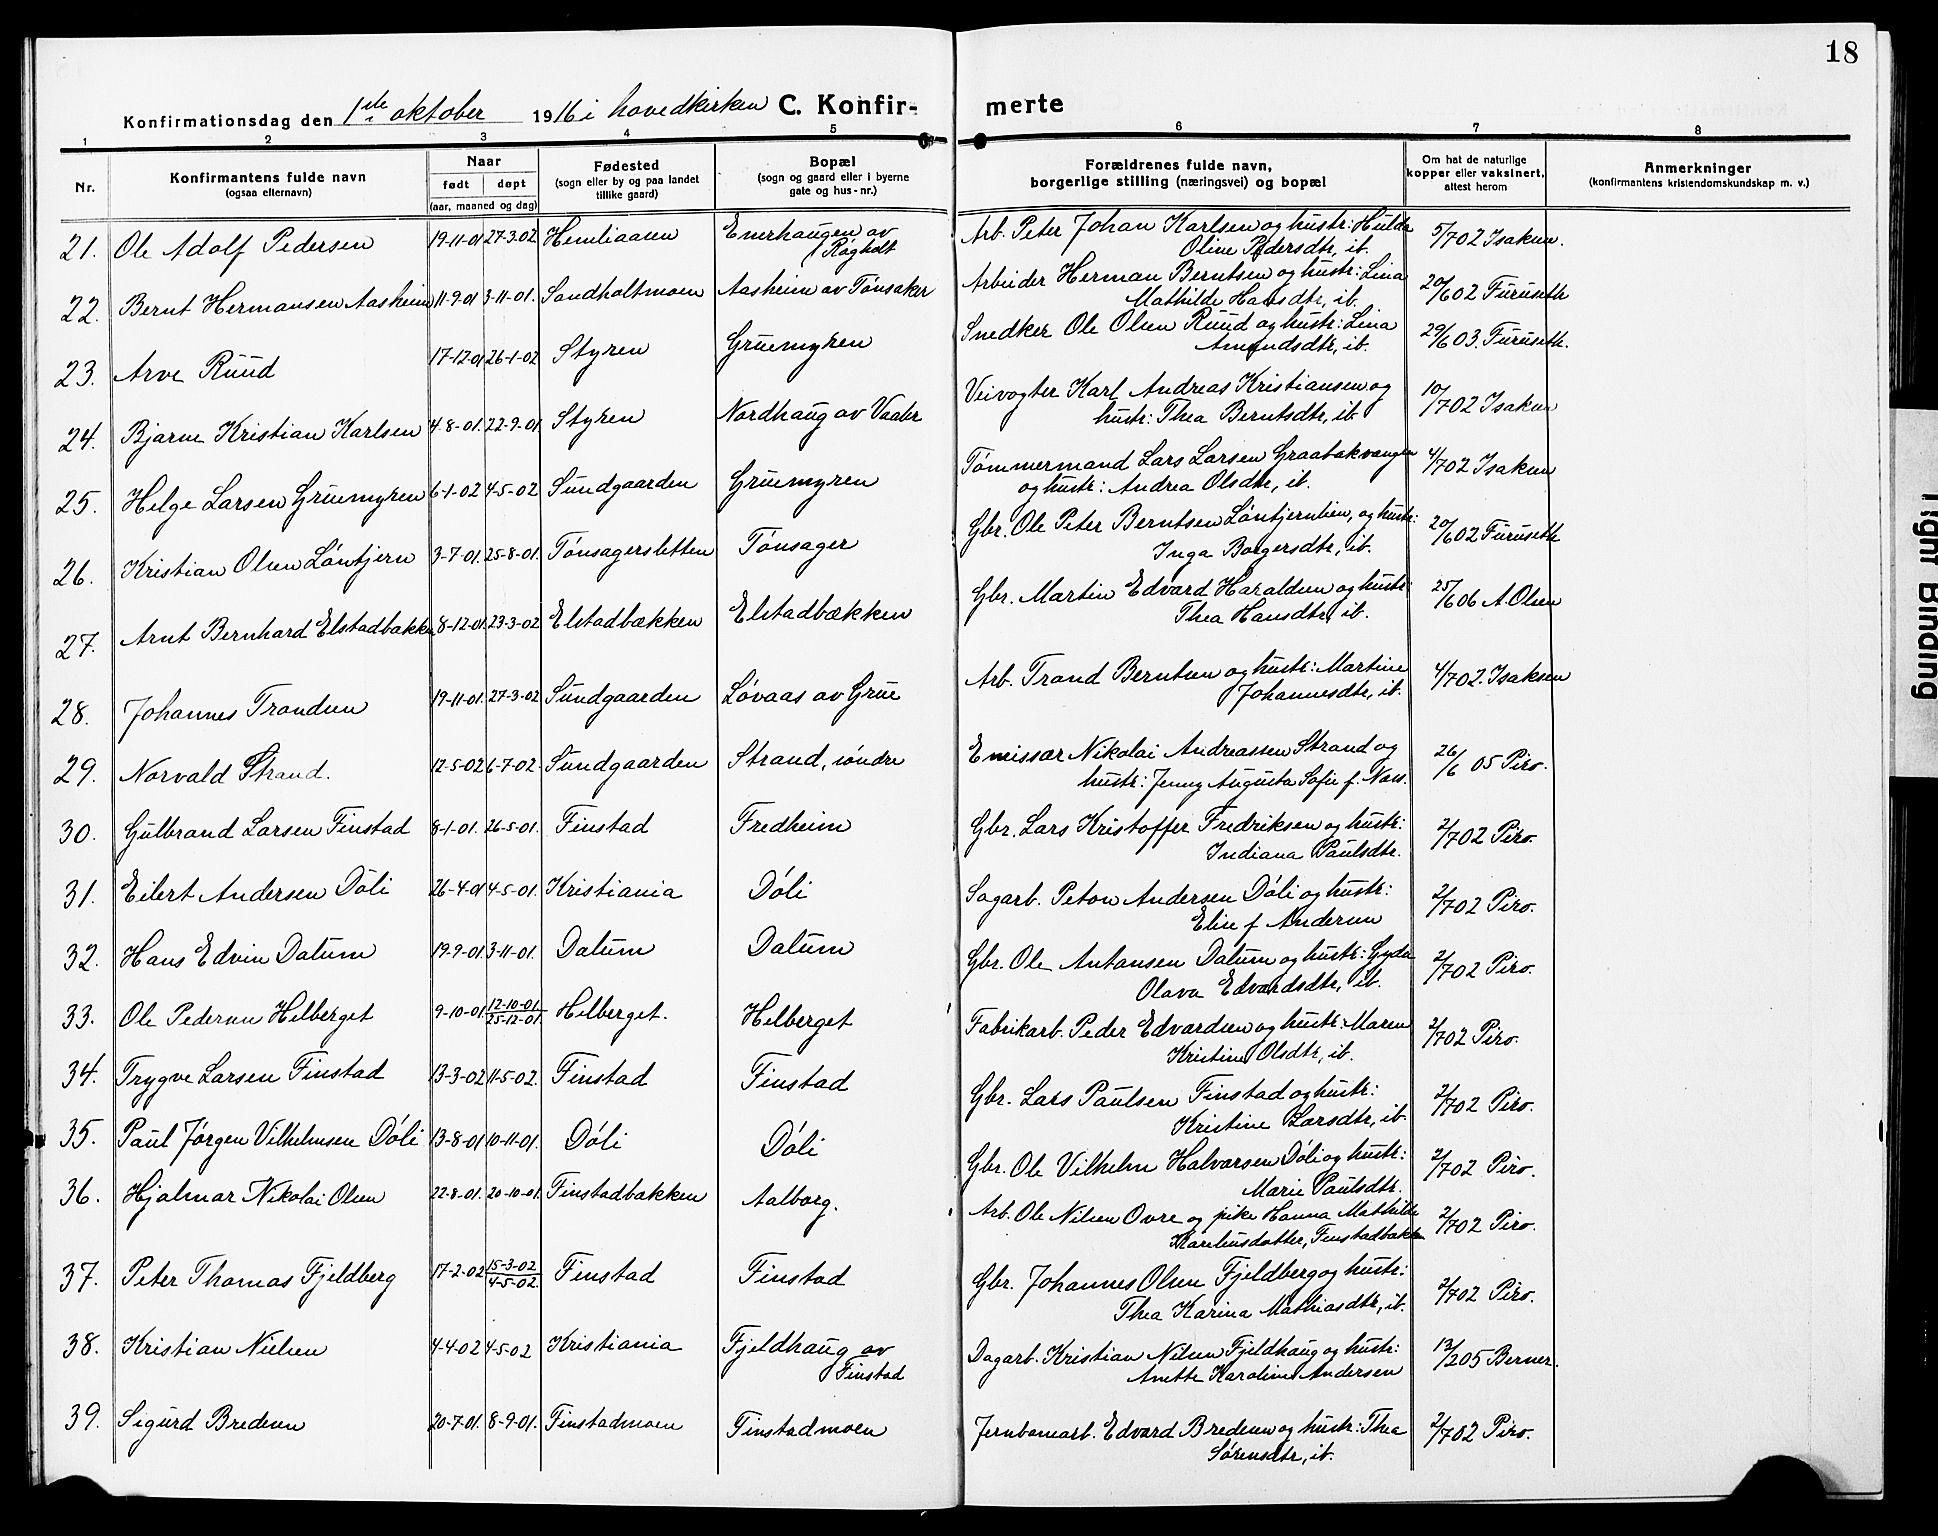 18
Konfirmationsdag den 1ste oktober 1916 i hovedkirken C. Konfir- merte
1 2 3 4 5 6 7 8
Nr. Konfirmantens fulde navn (ogsaa efternavn) Naar født døpt (aar, maaned og dag) Fødested (sogn eller by og paa landet tillike gaard) Bopæl (sogn og gaard eller i byerne gate og hus-nr.) Forældrenes fulde navn, borgerlige stilling (næringsvei) og bopæl Om hat de naturlige kopper eller vaksinert, attest herom Anmerkninger (konfirmantens kristendomskundskap m. v.)
21. Ole Adolf Pedersen 19-11-01 27-3-02 Hemliaasen Enerhaugen av Røgholt Arb. Peter Johan Karlsen og hustr: Hulda
Oline Pedersdtr, ib. 5/7 02 Isaksen.
22. Bernt Hermansen Aasheim 11-9-01 3-11-01. Sandholtmoen Aasheim av Tønsaker Arbeider Herman Berntsen og hustr: Lina
Mathilde Hansdtr, ib. 20/6 02 Furuseth
23. Arve Ruud 17-12-01 26-1-02 Styren Gruemyren Snedker Ole Olsen Ruud og hustr: Lina
Amundsdtr, ib. 29/6 03. Furuseth.
24. Bjarne Kristian Karlsen 4-8-01. 22-9-01 Styren Nordhaug av Vaaler Veivogter Karl Andreas Kristiansen og
hustr: Thea Berntsdtr, ib. 10/7 02 Isaksen
25. Helge Larsen Gruemyren 6-1-02 4-5-02 Sundgaarden Gruemyren Tømmermand Lars Larsen Graabakvangen
og hustr: Andrea Olsdtr, ib. 4/7 02 Isaksen
26. Kristian Olsen Løntjern 3-7-01. 25-8-01. Tønsagersletten Tønsager Gbr. Ole Peter Berntsen Løntjernlien, og hustr:
Inga Borgersdtr, ib. 20/6 02 Furuseth
27. Arnt Bernhard Elstadbakken 8-12-01 23-3-02 Elstadbækken Elstadbækken Gbr. Martin Edvard Haraldsen og hustr:
Thea Hansdtr, ib. 25/6 06 A. Olsen
28. Johannes Trondsen 19-11-01. 27-3-02 Sundgaarden Løvaas av Grue Arb. Trond Berntsen og hustr: Martine
Johannesdtr, ib. 4/7 02. Isaksen
29. Norvald Strand. 12-5-02 6-7-02. Sundgaarden Strand, søndre Emissær Nikolai Andreassen Strand og
hustr: Jenny Augusta Sofie f. Næss. 26/6 05 Piro.
30. Gulbrand Larsen Finstad 8-1-01. 26-5-01. Finstad Fredheim Gbr. Lars Kristoffer Fredriksen og hustr:
Indiana Paulsdtr. 2/7 02 Piro.
31. Eilert Andersen Døli 26-4-01 4-5-01. Kristiania Døli Sagarb. Peton Andersen Døli og hustr:
Elise f Andersen 2/7 02 Piro.
32. Hans Edvin Dalum 19-9-01. 3-11-01. Dalum Dalum Gbr. Ole Antonsen Dalum og hustr: Gyda
Olava Edvardsdtr, ib. 2/7 02 Piro.
33. Ole Pedersen Helberget 9-10-01. 12-10-01. 25-12-01. Helberget. Helberget Fabrikarb. Peder Edvardsen og hustr: Maren
Kristine Olsdtr, ib. 2/7 02 Piro.
34. Trygve Larsen Finstad 13-3-02 11-5-02. Finstad Finstad Gbr. Lars Paulsen Finstad og hustr:
Kristine Larsdtr, ib. 2/7 02 Piro.
35. Paul Jørgen Vilhelmsen Døli 13-8-01 10-11-01. Døli Døli Gbr. Ole Vilhelm Halvorsen Døli og hustr:
Marie Paulsdtr. 2/7 02 Piro.
36. Hjalmar Nikolai Olsen 22-8-01. 20-10-01. Finstadbakken Aalborg. Arb. Ole Nilsen Ovre og pike Hanna Mathilde
Kareliusdatter, Finstadbakken 2/7 02 Piro.
37. Peter Thomas Fjeldberg 17-2-02 15-3-02 4-5-02. Finstad Finstad Gbr. Johannes Olsen Fjeldberg og hustr:
Thea Karina Mathiasdtr, ib. 2/7 02 Piro.
38. Kristian Nielsen 4-4-02 4-5-02 Kristiania Fjeldhaug av Finstad Dagarb. Kristian Nilsen Fjeldhaug og hustr:
Anette Karoline Andersen 13/2 05 Berner.
39. Sigurd Bredesen 20-7-01. 8-9-01. Finstadmoen Finstadmoen Jernbanearb. Edvard Bredesen og hustr: Thea
Sørensdtr, ib. 2/7 02 Piro.
Tight Binding